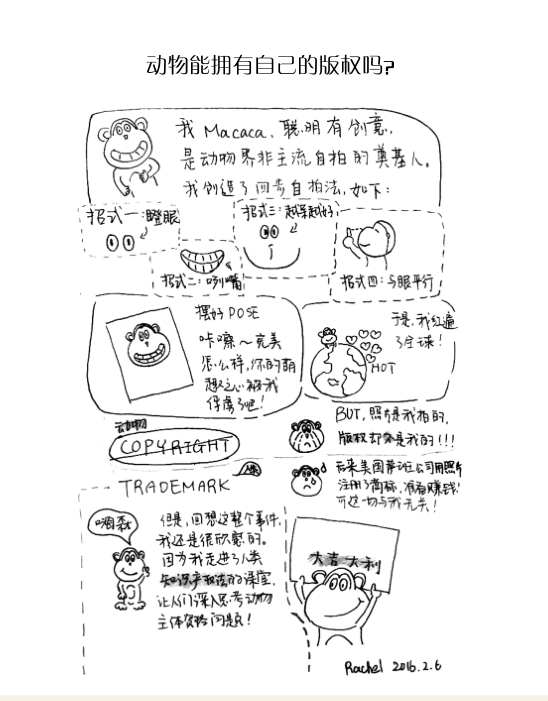 动物能拥有自己的版权吗?
我 Macaca, 聪明有创意,
是动物界非主流自拍的奠基人。
我创造了四步自拍法, 如下:
招式一: 瞪眼
招式二: 咧嘴
招式三: 越萌越好
招式四: 与眼平行
摆好 POSE
咔嚓~完美
怎么样, 你的萌
俘虏了吧!
于是, 我红遍
了全球!
HOT
动物
COPYRIGHT
BUT, 照片是我拍的,
版权却不是我的!!!
TRADEMARK
后来美国某社公司用照片
注册了商标, 准备赚钱!
可这一切与我无关!
嗨森
但是, 回想这整个事件,
我还是很欣慰的。
因为我走进了人类
知识产权法的课堂,
让人们深入思考动物
主体资格问题!
大吉大利
Rachel 2016.2.6